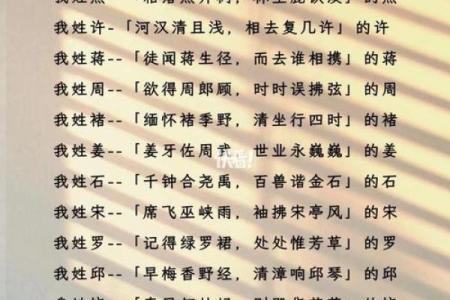 我姓许-「河汉清且浅，相去复几许」的许
我姓蒋--「徒闻蒋生径，而去谁相携」的蒋
我姓周--「欲得周郎顾，时时误拂弦」的周
我姓褚--「缅怀褚季野，清坐行四时」的褚
我姓姜--「姜牙佐周武，世业永巍巍」的姜
我姓石--「千钟合尧禹，百兽谐金石」的石
我姓宋--「席飞巫峡雨，袖拂宋亭风」的宋
我姓罗--「记得绿罗裙，处处惟芳草」的罗
我姓邱--「早梅香野经，清漳响邱琴」的邱